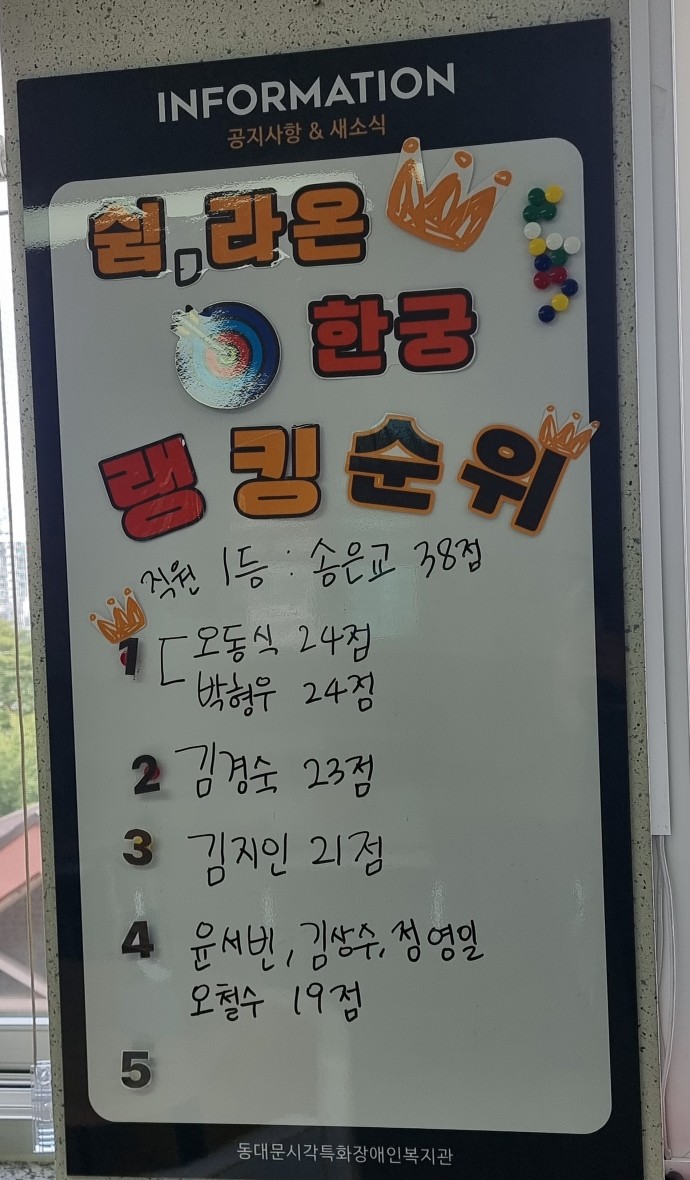 INFORMATION
공지사항 & 새소식
쉼,라온
한궁
랭킹순위
직원 1등 : 송은교 38점
1 오동식 24점
박형우 24점
2 김경숙 23점
3 김지인 21점
4 윤서빈, 김상수, 정영일
오철수 19점
5
동대문시각특화장애인복지관